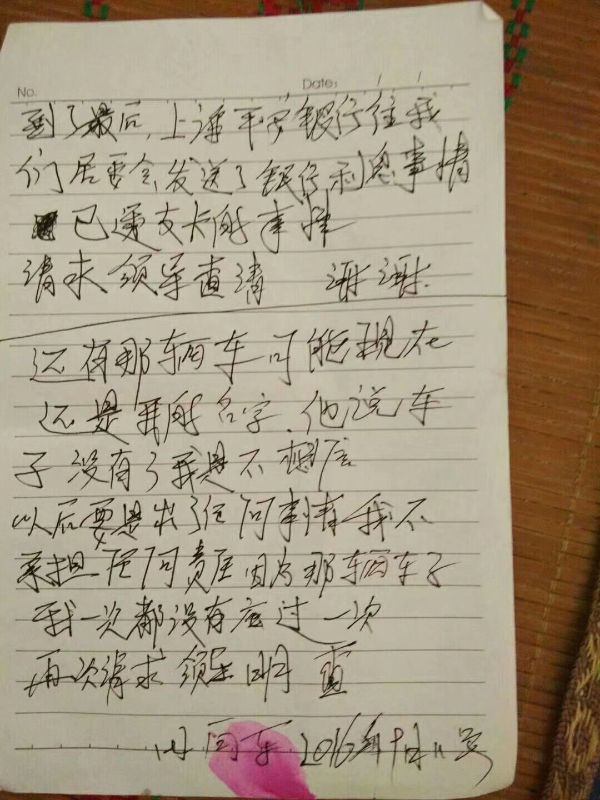 No.
Date:
到了最后,上海平安银行往我
们居委会,发送了银行利息事情
已透支卡的事情
请求领导查清 谢谢.
还有那辆车可能现在
还是我的名字.他说车
子没有了我是不想
以后要是出了任何事情我不
承担任何责任因为那辆车子
我一次都没有 过一次
再次请求领导明查
2016年 月11号